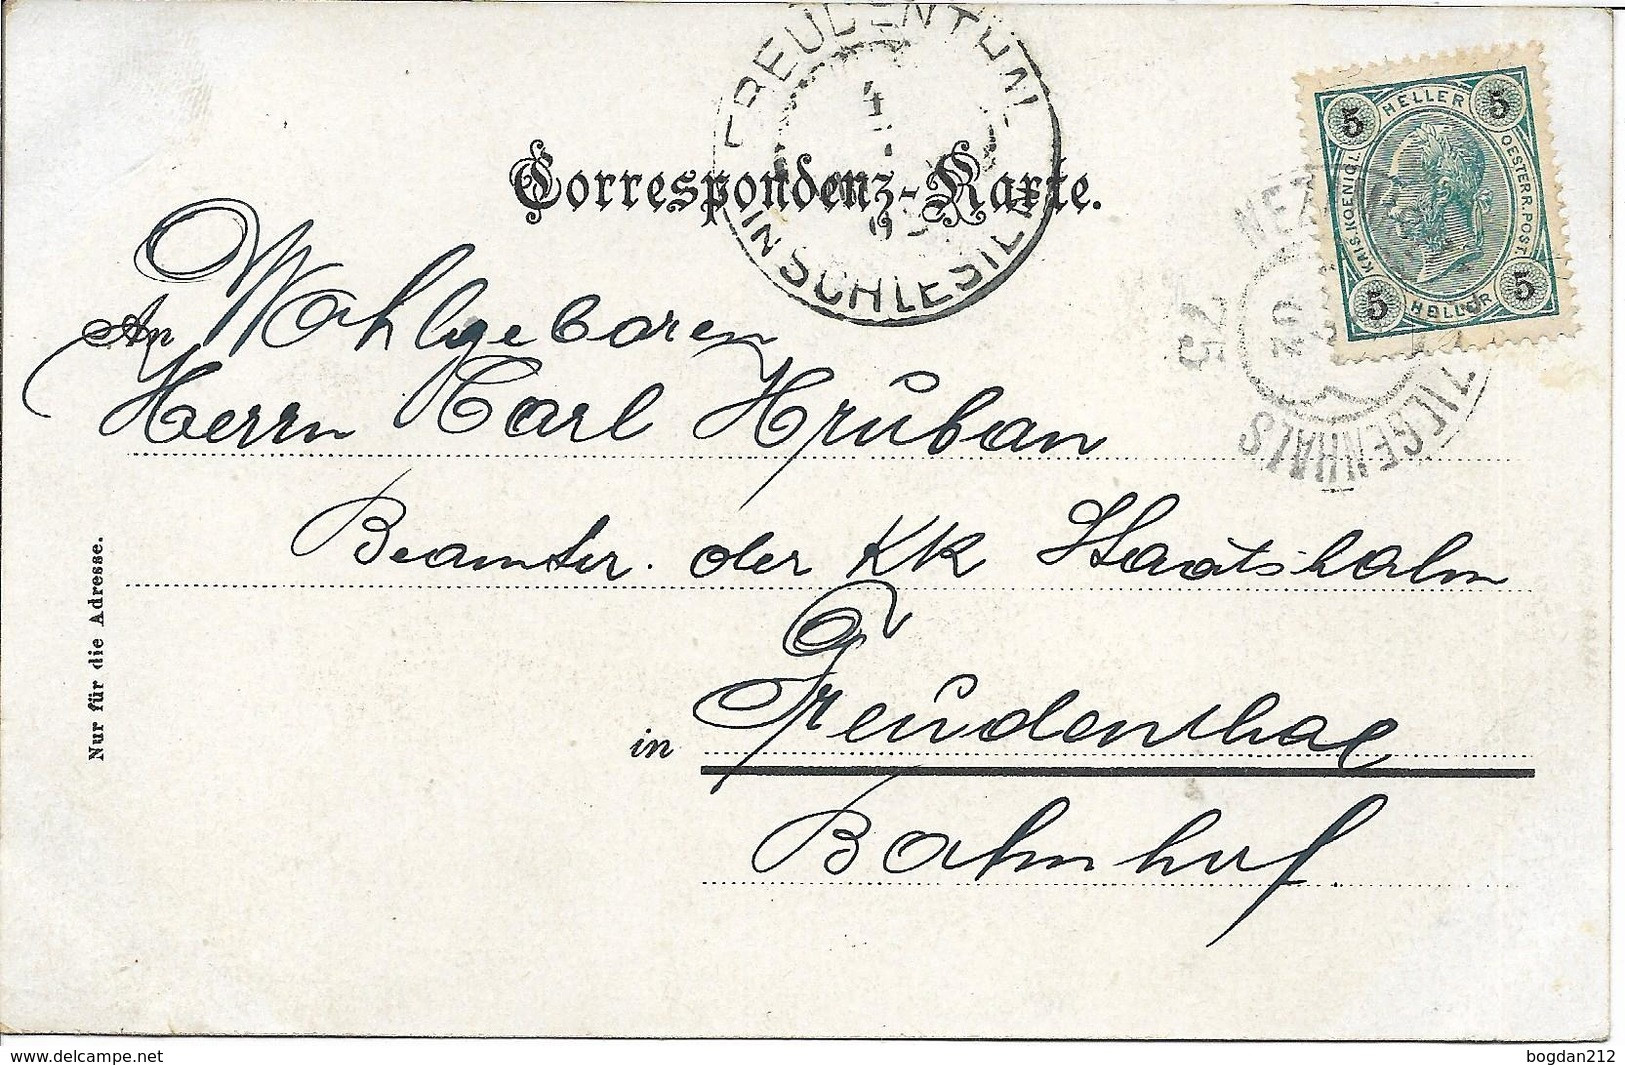 FREUDENTHAL
IN SCHLESIEN
4
Correspondenz-Karte.
5 HELLER 5
KAIS. KOENIGL.
OESTERR. POST.
5 HELLER 5
ZIEGENHALS
75
An Wohlgeboren
Herrn Carl Hruban
Beamter. der KK Staatsbahn
in Freudenthal
Bahnhof
Nur für die Adresse.
www.delcampe.net
bogdan212